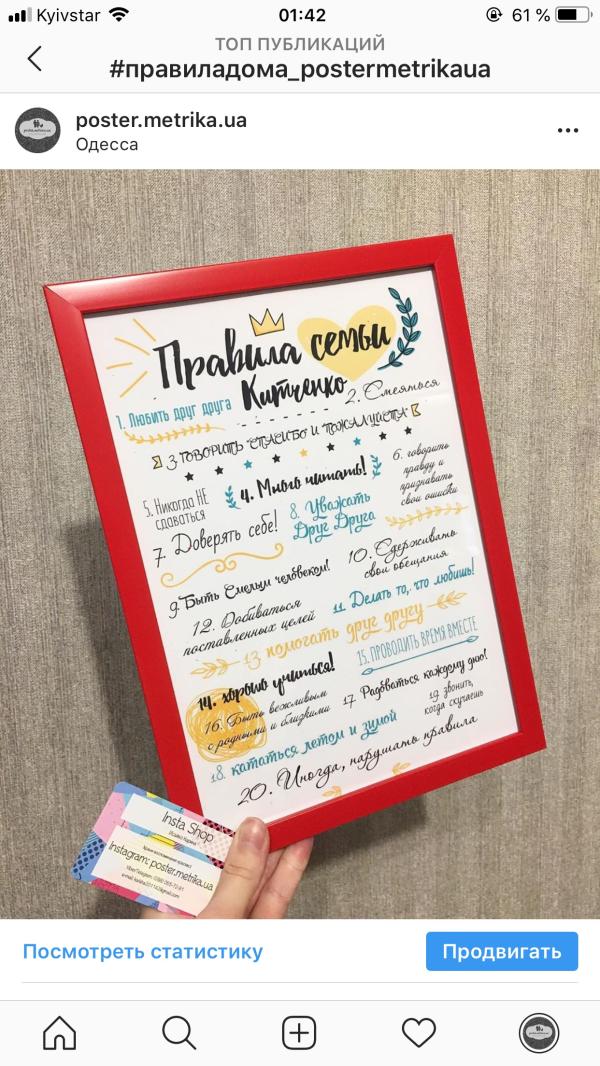 Kyivstar 01:42 61 %
ТОП ПУБЛИКАЦИЙ
#правиладома_postermetrikaua
poster.metrika.ua
Одесса
Правила семьи
Китченко
1. Любить друг друга
2. Смеяться
3 ГОВОРИТЬ СПАСИБО И ПОЖАЛУЙСТА
4. Много читать!
5. Никогда НЕ
сдаваться
6. говорить
правду и
признавать
свои ошибки
7. Доверять себе!
8. Уважать
Друг Друга
9. Быть Смелым человеком!
10. Сдерживать
свои обещания
11. Делать то, что любишь!
12. Добиваться
поставленных целей
13 помогать друг другу
14. хорошо учиться!
15. ПРОВОДИТЬ ВРЕМЯ ВМЕСТЕ
16. Быть вежливым
с родными и близкими
17. Радоваться каждому дню!
18. кататься летом и зимой
19. звонить,
когда скучаешь
20. Иногда, нарушать правила
Insta Shop
Instagram: poster.metrika.ua
Посмотреть статистику
Продвигать